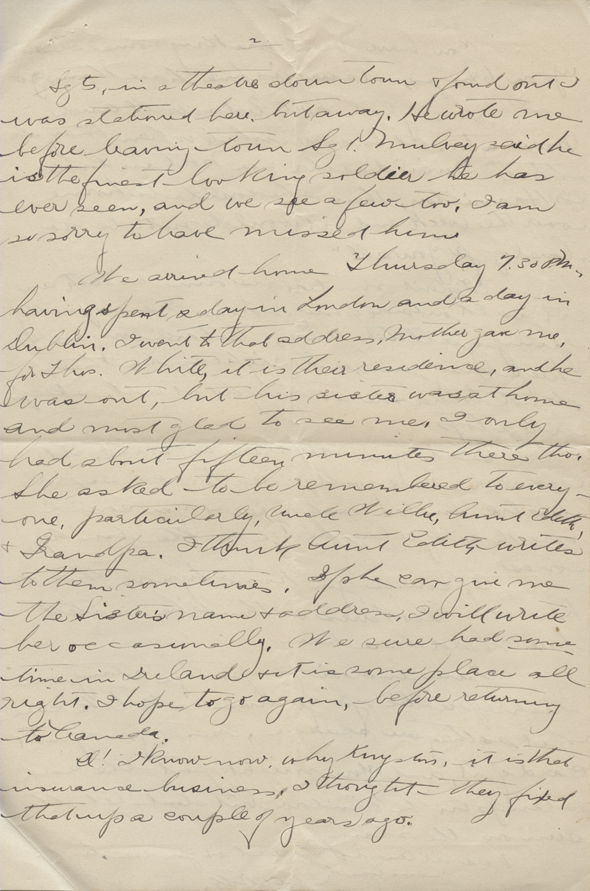 2
Sgt, in a theatre down town & found out I
was stationed here, but away. He wrote me
before leaving town. Sgt. Mulvey said he
is the finest looking soldier he has
ever seen, and we see a few too. I am
so sorry to have missed him.
We arrived home Thursday 7.30 P.M.,
having spent a day in London and a day in
Dublin. I went to that address, Mother gave me,
for Thos. White, it is their residence, and he
was out, but his sister was at home
and most glad to see me. I only
had about fifteen minutes there tho.
She asked to be remembered to every-
one, particularly, Uncle Willie, Aunt Edith,
& Grandpa. I think Aunt Edith writes
to them sometimes. If she can give me
the Sister's name & address, I will write
her occasionally. We sure had some
time in Ireland & it is some place all
right. I hope to go again, before returning
to Canada.
I know now, why Kingston, it is that
insurance business, I thought they fixed
that up a couple of years ago.